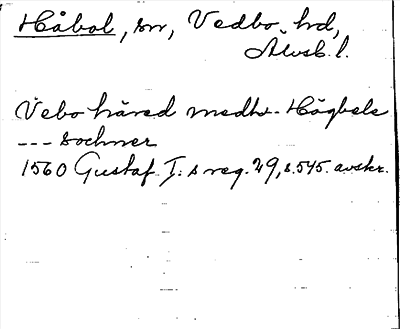 Håbol, sn, Vedbo hd,
Älvsb. l.
Vebo häred medh - Högbele
--- sochner
1560 Gustaf I:s reg. 29, s. 545. avskr.